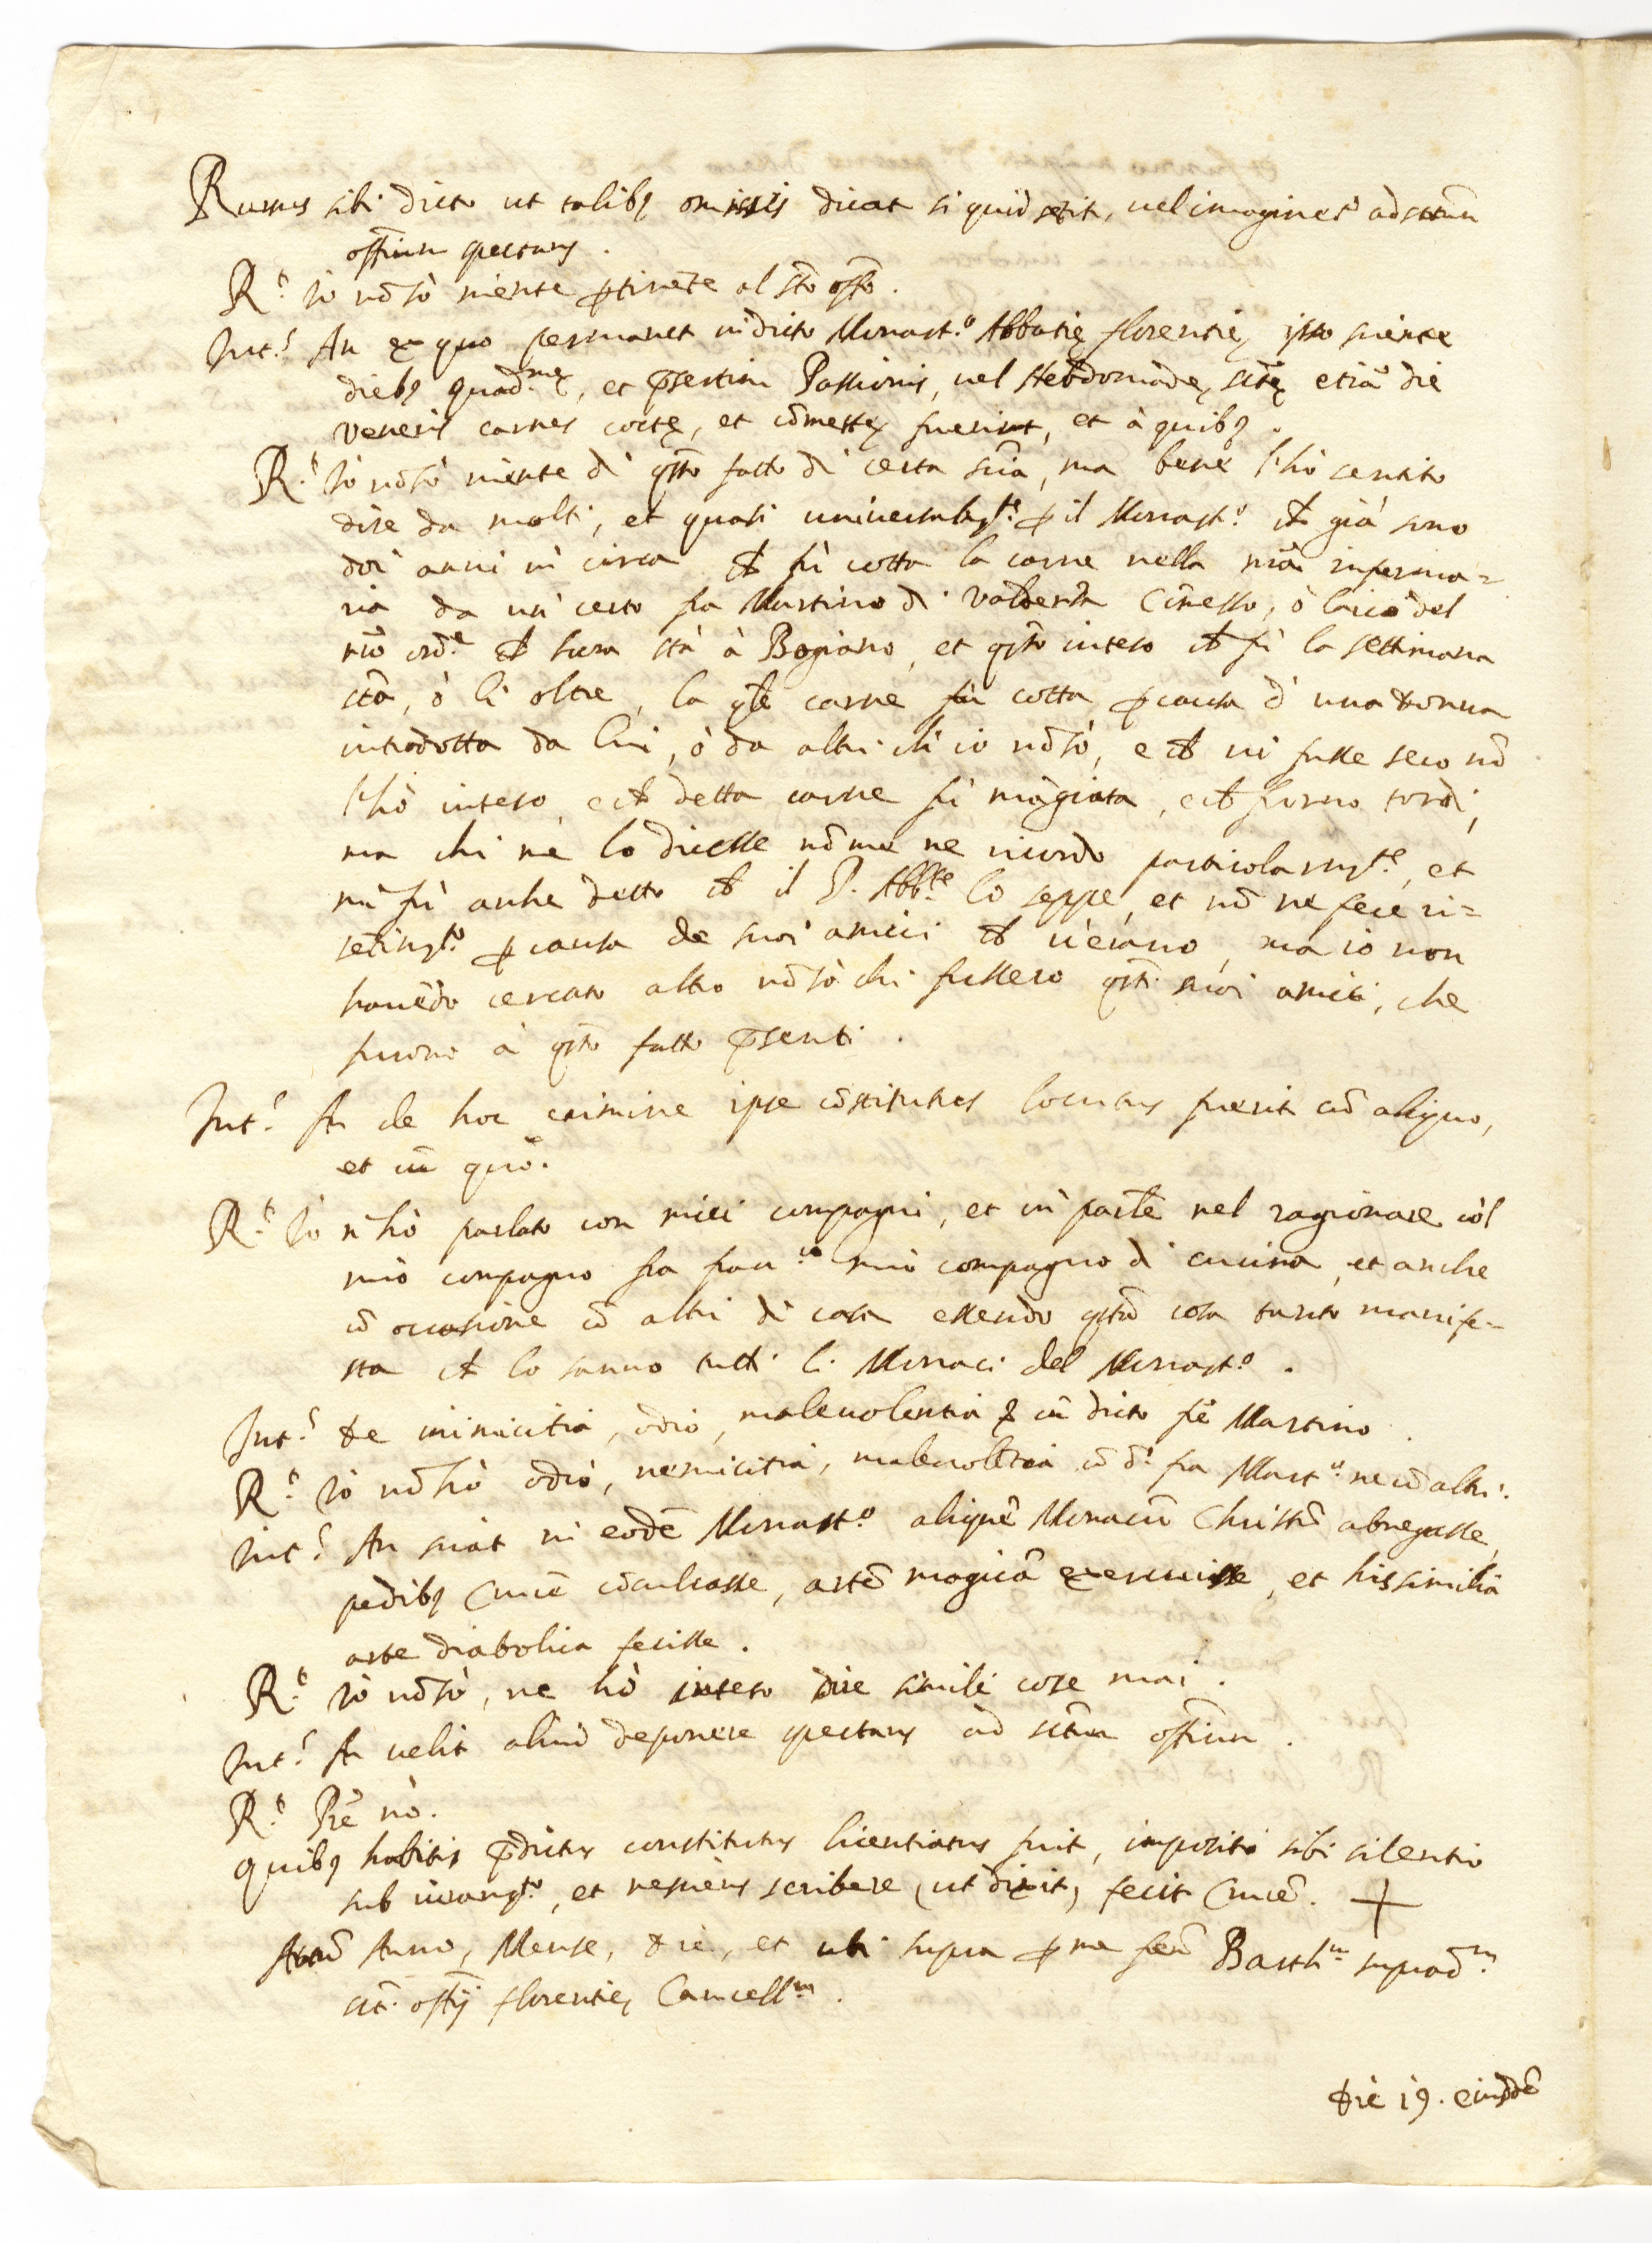 Rursus sibi dicto ut talibꝫ omissis dicat si quid scit, uel imaginet̃ ad sctum
offium spectans.
R.t Io nõ sò niente ꝑtinẽte al sto offo.
Int.s An ex quo permanet in dicto Monast.o Abbatię florentię, ipso sciente
diebꝫ quad.mę, et p̃sertim Passionis, uel Hebdomadę sctę etiã die
veneris carnes coctę, et cõmestę fuerint, et à quibꝫ.
R.t Io nõ sò niente di qsto fatto di certa sciã, ma bene l'hò sentito
dire da molti, et quasi uniuersalmt.e ꝑ il Monast.o ch già sono
doi anni in circa ch fù cotta la carne nella nrã inferma=
ria da un' certo fra Martino di Cõmesso, ò laico del
nrõ ord.e ch hora stà à Bogiano, et qsto inteso ch fù la settimana
sctã, ò lì oltre, la qle carne fù cotta ꝑ causa d' una donna
introdotta da lui, ò da altri ch' io nõ sò, e ch ui fusse seco nõ
l'hò inteso, e ch detta carne fù mãgiata, e ch furno tordi,
ma chi me lo dicesse nõ me ne ricordo particolarmt.e, et
mi fù anche detto ch il P. Abb.te lo seppe, et nõ ne fece ri=
sẽtimt.o ꝑ causa de suoi amici ch u'erano, ma io non
hauẽdo cercato altro nõ sò chi fussero qsti suoi amici, che
furono à qsto fatto p̃senti.
Int.s An de hoc crimine ipse cõstitutus locutus fuerit cũ aliquo,
et cũ quõ.
R.t Io n'hò parlato con miei compagni, et in' partẽ nel ragionare còl
mio compagno fra fran.co mio compagno di cucina, et anche
cõ occasione cõ altri di casa essendo qsta cosa tanto manife=
sta ch lo sanno tutti li Monaci del Monast.o.
Int.s de inimicitia, odio, maleuolentia & cũ dicto frẽ Martino.
R.t Io nõ hò odio, nemicitia, maleuolẽtia cõ d.o fra Mart.o ne cõ altri.
Int.s An sciat in eodẽ Monast.o aliquẽ Monacũ Christũ abnegasse,
pedibꝫ Crucẽ cõculcasse, artẽ magicã exercuisse, et his similia
arte diabolica fecisse.
R.t Io nõ sò, ne hò inteso dire simili cose mai.
Int.s An uelit aliud deponere spectans ad sctum offium.
R.t Prẽ nò.
Quibꝫ habitis p̃dictus constitutus licentiatus fuit, imposito sibi silentio
sub iuramt.o, et nesciens scribere, (ut dixit, fecit Crucẽ. +
Actũ Anno, Mense, die, et ubi supra ꝑ me frẽ Barth.m suprad.m
sct. offij florentię Cancell.m.
Die 19. eiusdẽ